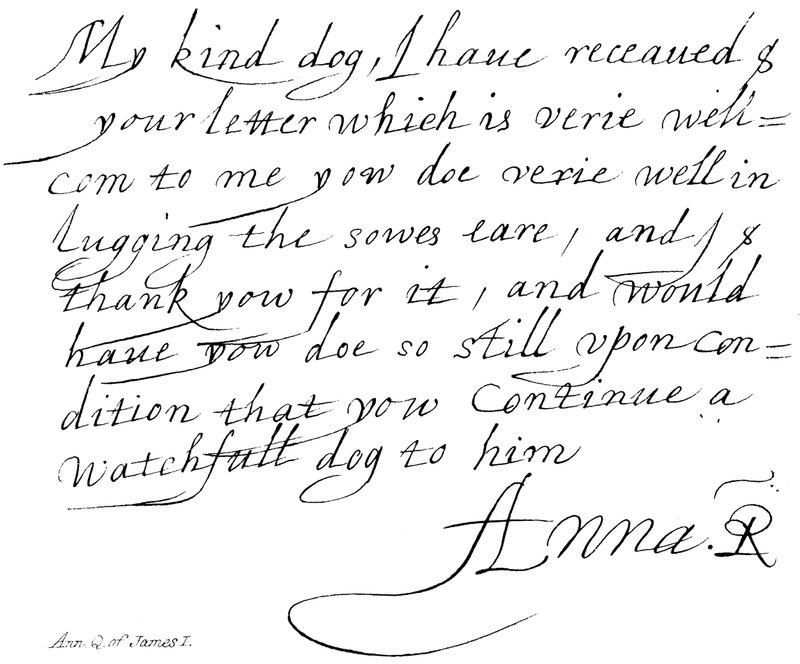 My kind dog, I haue receaued
your letter which is verie well=
com to me yow doe verie well in
lugging the sowes eare, and I
thank yow for it, and would
haue yow doe so still vpon con=
dition that yow continue a
watchfull dog to him
Anna. R
Ann. Q. of James I.